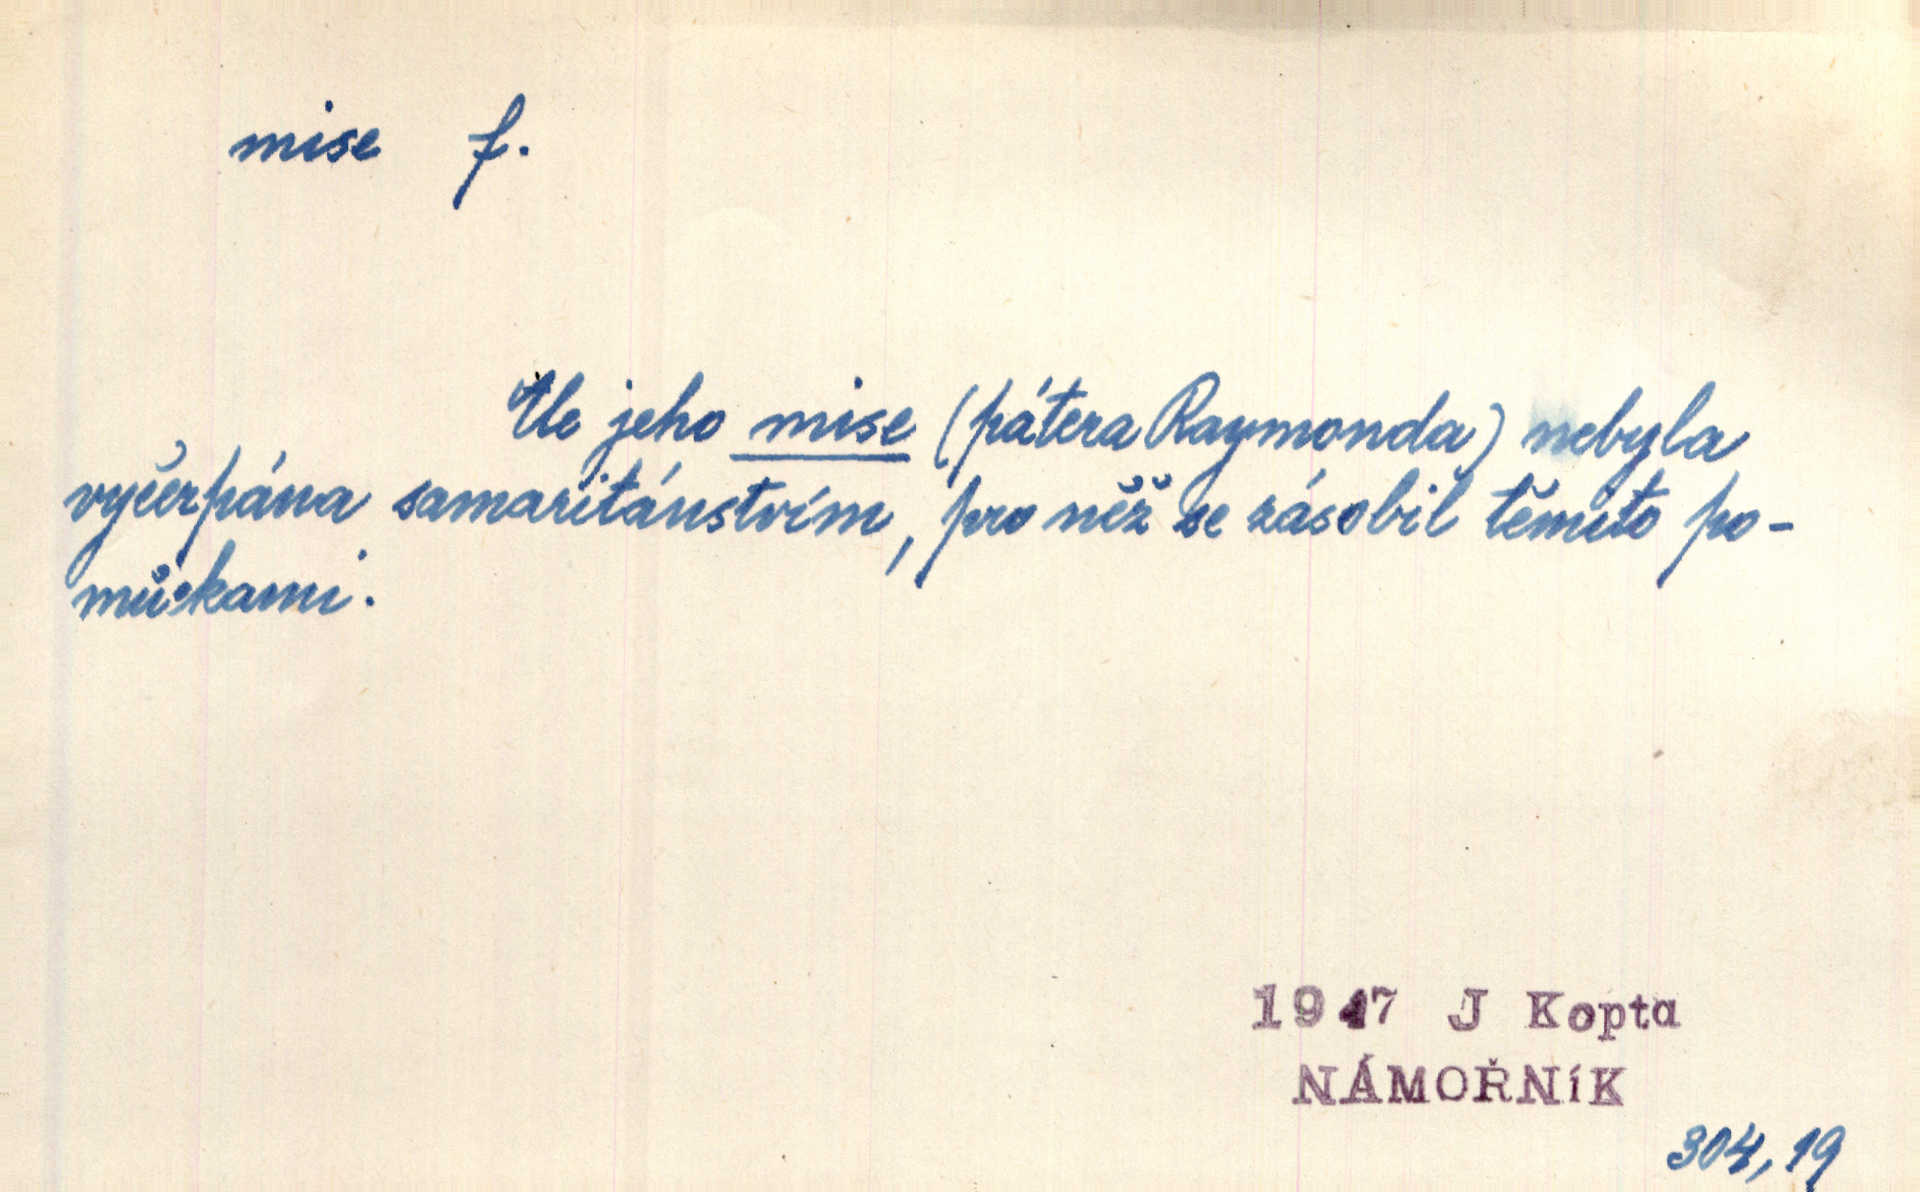 mise f.
Ale jeho mise (pátera Raymonda) nebyla
vyčerpána samaritánstvím, pro něž se zásobil těmito po-
můckami.
1947 J Kopta
NÁMOŘNíK
304,19